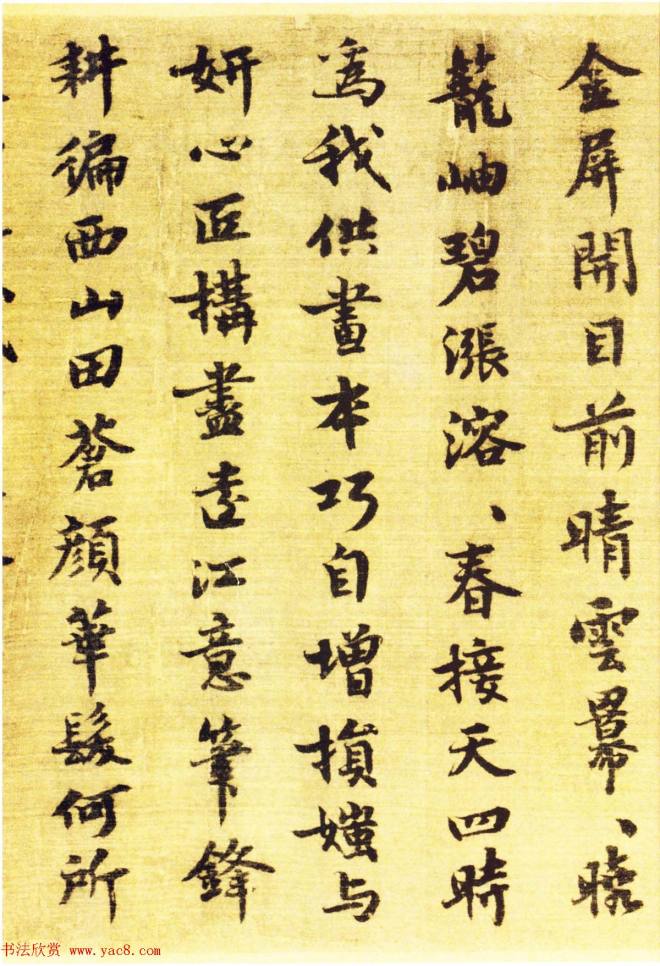 金屏開目前晴雲羃、曉
籠岫碧漲溶、春接天四時
為我供畫本巧自增損媸与
妍心匠構盡遠江意筆鋒
耕徧西山田蒼顏華髮何所
书法欣赏 www.yac8.com